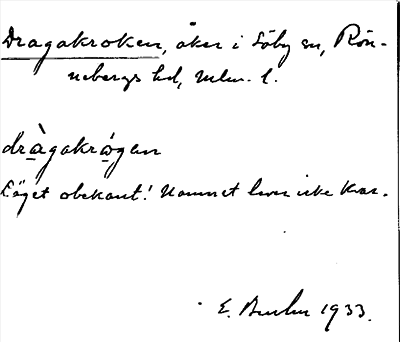 Dragakroken, åker i Säby sn, Rön-
nebergs hd, Mlm. l.
dràgakrógen
Läget obekant! Namnet lever icke kvar.
E. 1933.